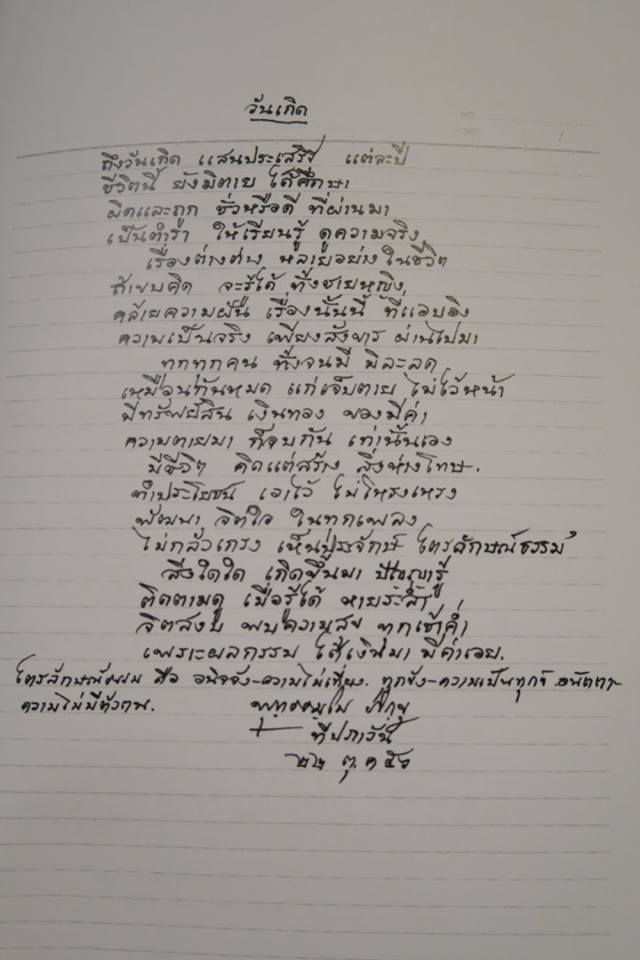 วันเกิด
ถึงวันเกิด แสนประเสริฐ แต่ละปี
ชีวิตนี้ ยังมิตาย ได้ศึกษา
ผิดและถูก ชั่วหรือดี ที่ผ่านมา
เป็นตำรา ให้เรียนรู้ ดูความจริง
เรื่องต่างต่าง หลายอย่าง ในชีวิต
ถ้าขบคิด จะรู้ได้ ทั้งชายหญิง
คล้ายความฝัน เรื่องนั้นนี้ ที่แอบอิง
ความเป็นจริง เพียงสังขาร ผ่านไปมา
ทุกทุกคน ทั้งจนมี มิละลด
เหมือนกันหมด แก่เจ็บตาย ไม่ไว้หน้า
มีทรัพย์สิน เงินทอง ของมีค่า
ความตายมา ก็จบกัน เท่านั้นเอง
มีชีวิต คิดแต่สร้าง สิ่งห่างโทษ.
ทำประโยชน์ เอาไว้ ไม่โหรงเหรง
พัฒนา จิตใจ ในทุกเพลง
ไม่กลัวเกรง เห็นประจักษ์ ไตรลักษณ์ธรรม
สิ่งใดใด เกิดขึ้นมา ปัญญารู้
ติดตามดู เมื่อรู้ได้ หาย
จิตสงบ พบความสุข ทุกเช้าค่ำ
เพราะผลกรรม ได้เงินมา มีค่าเอย.
ไตรลักษณ์ คือ อนิจจัง-ความไม่เที่ยง. ทุกขัง-ความเป็นทุกข์ อนัตตา-
ความไม่มีตัวตน.
ภิกขุ
ทีปภาวัน
๒๒ ตุ.ค ๕๖